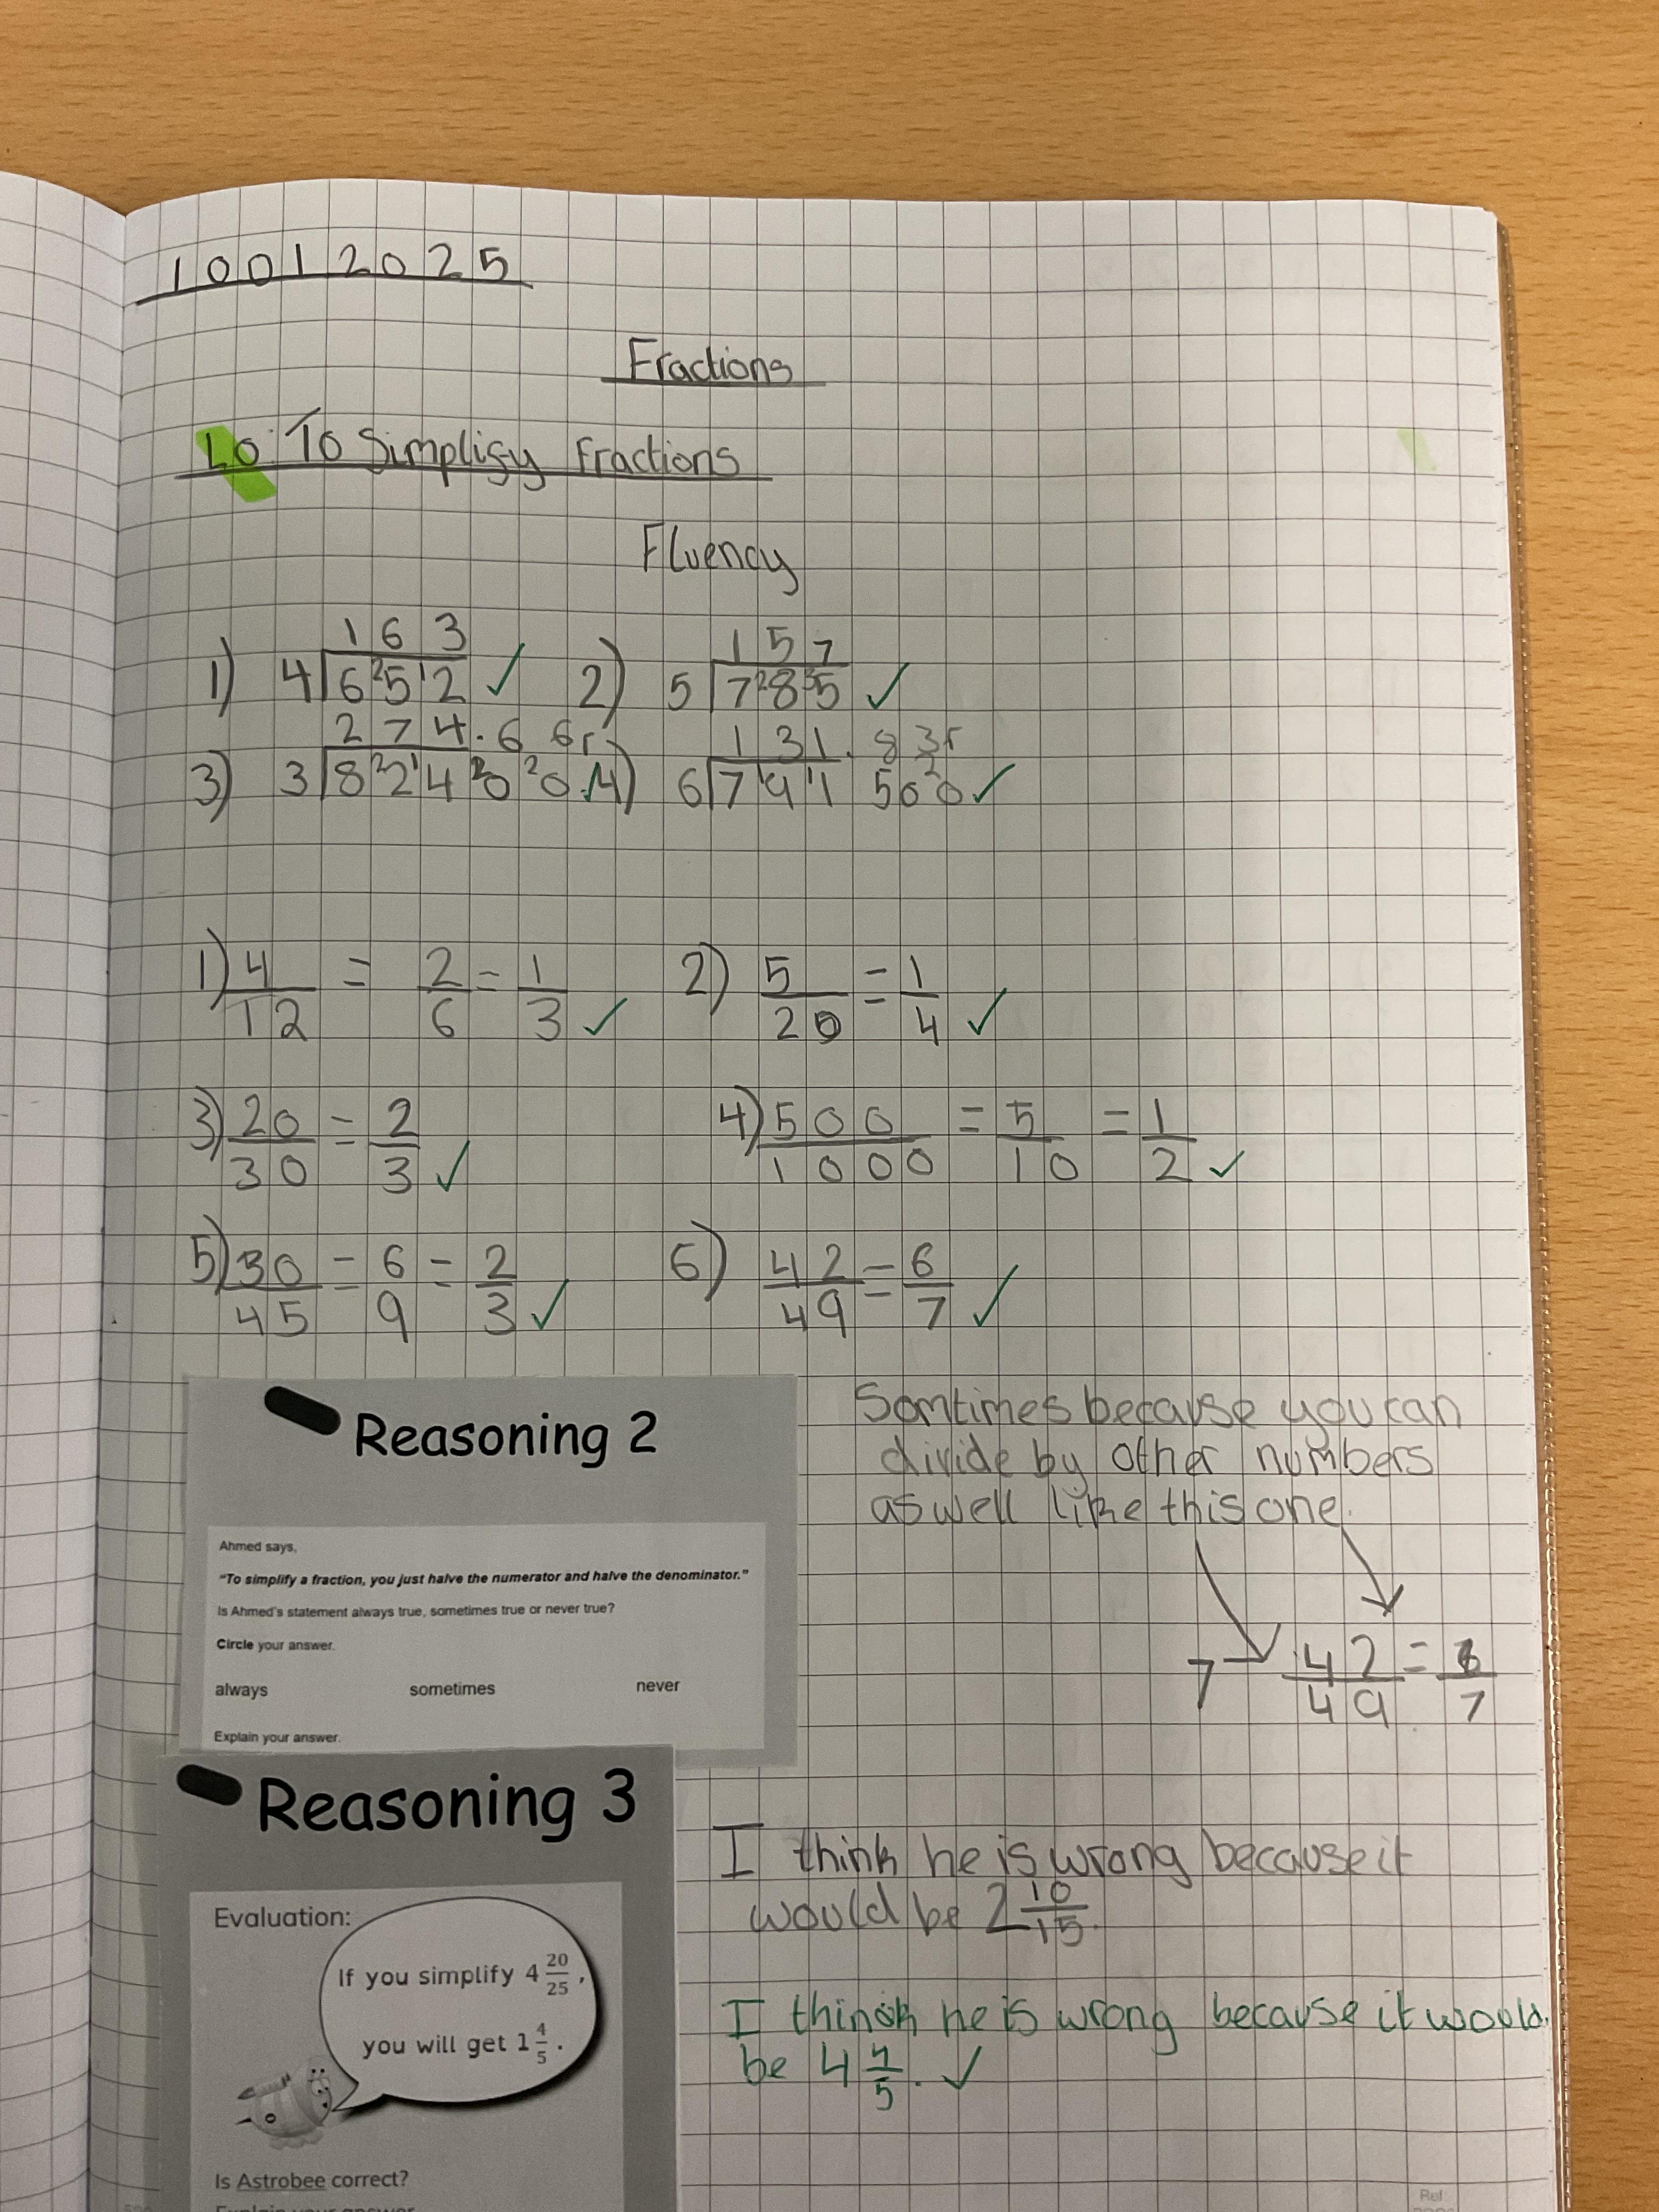 10012025
Fractions
LO: To Simplify Fractions
Fluency
1 6 3
1) 4 6²5¹2 ✓
1 5 7
2) 5 7²8³5 ✓
2 7 4 . 6 6r
3) 3 8²2¹4²0²0
1 3 1 . 8 3r
4) 6 7¹9¹1 50²0 ✓
1) 4/12 = 2/6 = 1/3 ✓ 2) 5/20 = 1/4 ✓
3) 20/30 = 2/3 ✓ 4) 500/1000 = 5/10 = 1/2 ✓
5) 30/45 = 6/9 = 2/3 ✓ 6) 42/49 = 6/7 ✓
Reasoning 2
Ahmed says,
"To simplify a fraction, you just halve the numerator and halve the denominator."
Is Ahmed's statement always true, sometimes true or never true?
Circle your answer.
always sometimes never
Explain your answer.
Somtimes because you can
divide by other numbers
as well like this one.
7 42/49 = 6/7
Reasoning 3
Evaluation:
If you simplify 4 20/25,
you will get 1 4/5.
Is Astrobee correct?
Explain your answer.
I think he is wrong because it
would be 2 10/15.
I think he is wrong because it would
be 4 4/5. ✓
Ref